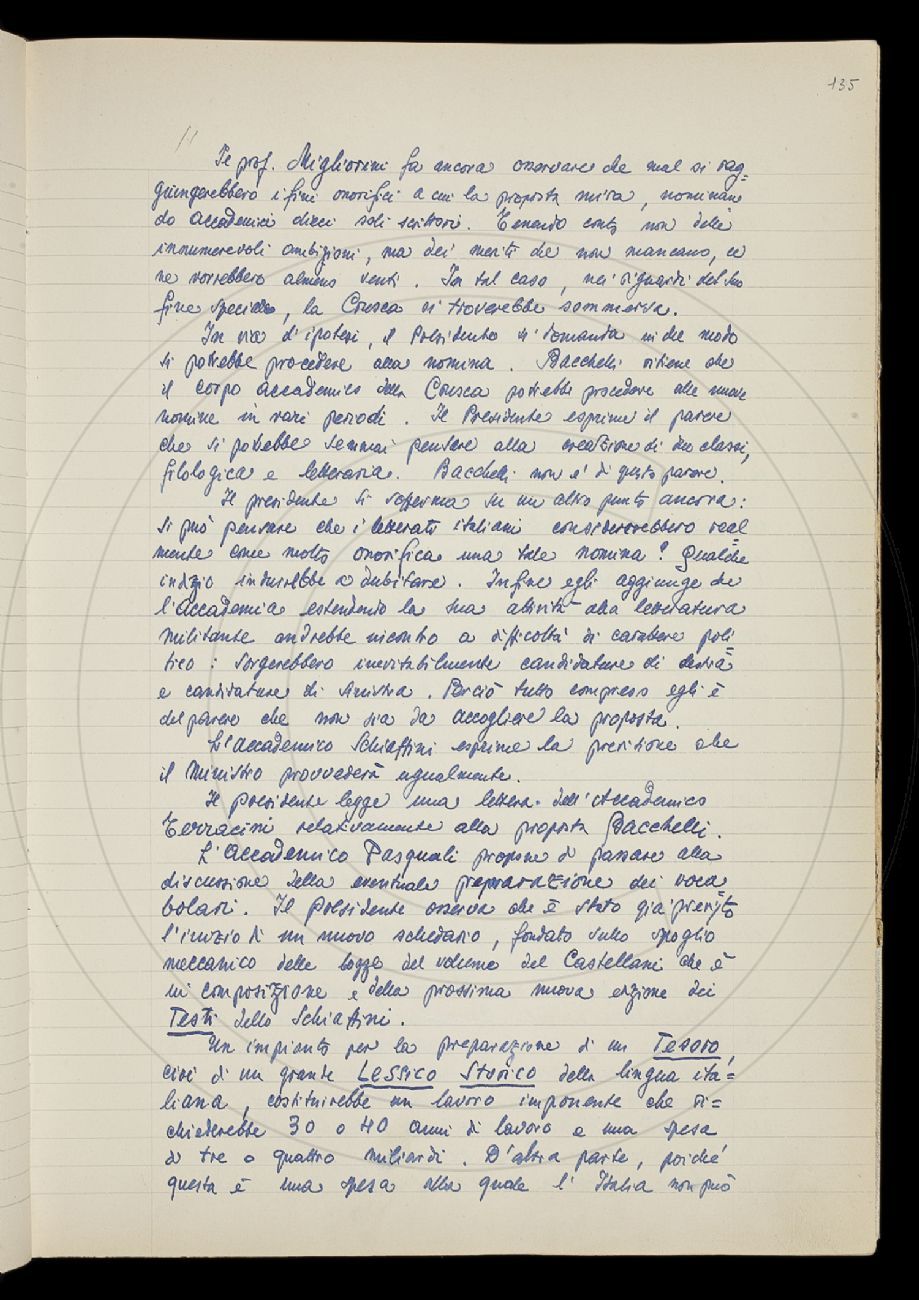 135
Il prof. Migliorini fa ancora osservare che mal si rag=
giungerebbero i fini onorifici a cui la proposta mira, nominan
do accademici dieci soli scrittori. Tenendo conto non delle
innumerevoli ambizioni, ma dei meriti che non mancano, ce
ne vorrebbero almeno venti. In tal caso, nei riguardi del suo
fine speciale, la Crusca si troverebbe sommersa.
In via d'ipotesi, il Presidente si domanda in che modo
si potrebbe procedere alla nomina. Bacchelli ritiene che
il corpo accademico della Crusca potrebbe procedere alle nuove
nomine in vari periodi. Il Presidente esprime il parere
che si potrebbe semmai pensare alla creazione di due classi,
filologica e letteraria. Bacchelli non è di questo parere.
Il presidente si sofferma su un altro punto ancora:
si può pensare che i letterati italiani considererebbero real=
mente come molto onorifica una tale nomina? Qualche
indizio indurrebbe a dubitare. Infine egli aggiunge che
l'Accademia estendendo la sua attività alla letteratura
militante andrebbe incontro a difficoltà di carattere poli=
tico: sorgerebbero inevitabilmente candidature di destra
e candidature di sinistra. Perciò tutto compreso egli è
del parere che non sia da accogliere la proposta.
L'accademico Schiaffini esprime la previsione che
il Ministro provvederà ugualmente.
Il presidente legge una lettera dell'Accademico
Terracini relativamente alla proposta Bacchelli.
L'Accademico Pasquali propone di passare alla
discussione della eventuale preparazione dei voca=
bolari. Il Presidente osserva che è stato già previsto
l'inizio di un nuovo schedario, fondato sullo spoglio
meccanico delle bozze del volume del Castellani che è
in composizione e della prossima nuova edizione dei
Testi dello Schiaffini.
Un impianto per la preparazione di un Tesoro,
cioè di un grande Lessico Storico della lingua ita=
liana, costituirebbe un lavoro imponente che ri=
chiederebbe 30 o 40 anni di lavoro e una spesa
di tre o quattro miliardi. D'altra parte, poiché
questa è una spesa alla quale l'Italia non può